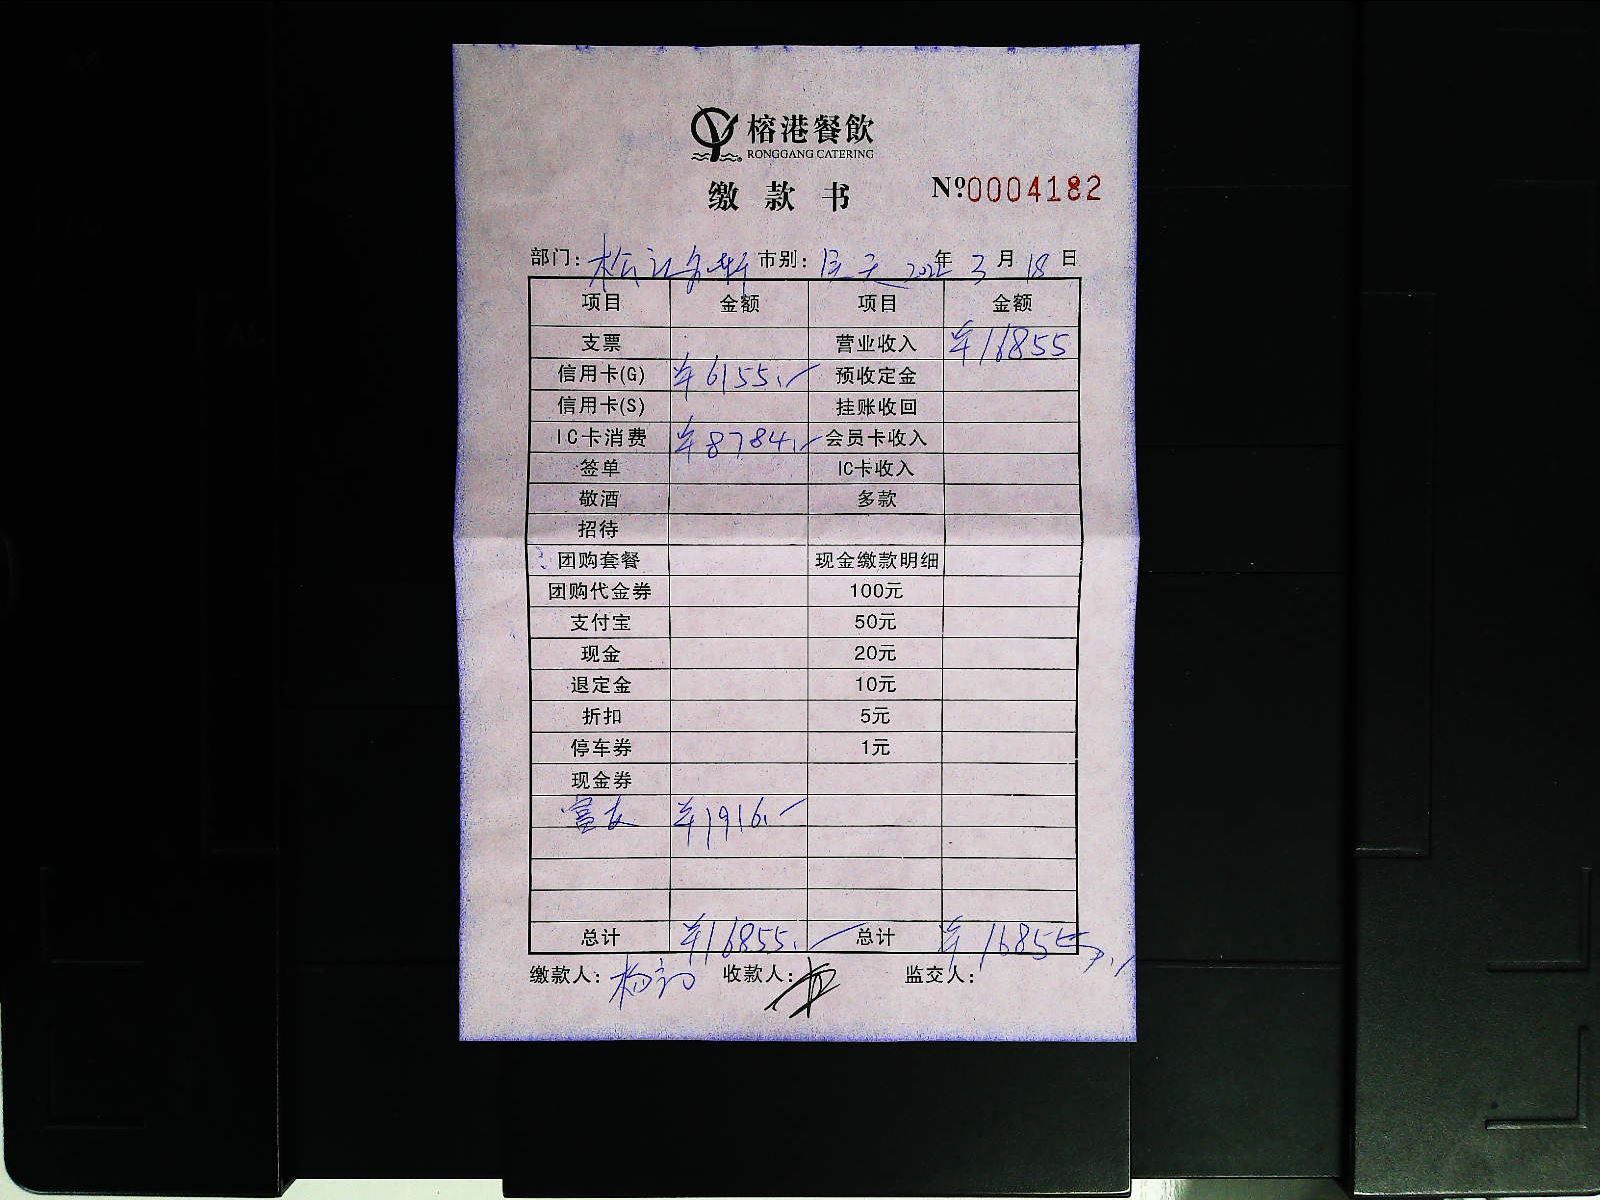 榕港餐飲
RONGGANG CATERING
缴款书 Nº0004182
部门: 松江 市别: 全天 2022年 3月 18日
项目 金额 项目 金额
支票 营业收入 ¥16855
信用卡(G) ¥6155.- 预收定金
信用卡(S) 挂账收回
IC卡消费 ¥8784.- 会员卡收入
签单 IC卡收入
敬酒 多款
招待
团购套餐 现金缴款明细
团购代金券 100元
支付宝 50元
现金 20元
退定金 10元
折扣 5元
停车券 1元
现金券
富友 ¥1916.-
总计 ¥16855.- 总计 ¥16855.-
缴款人: 杨 收款人: 监交人: